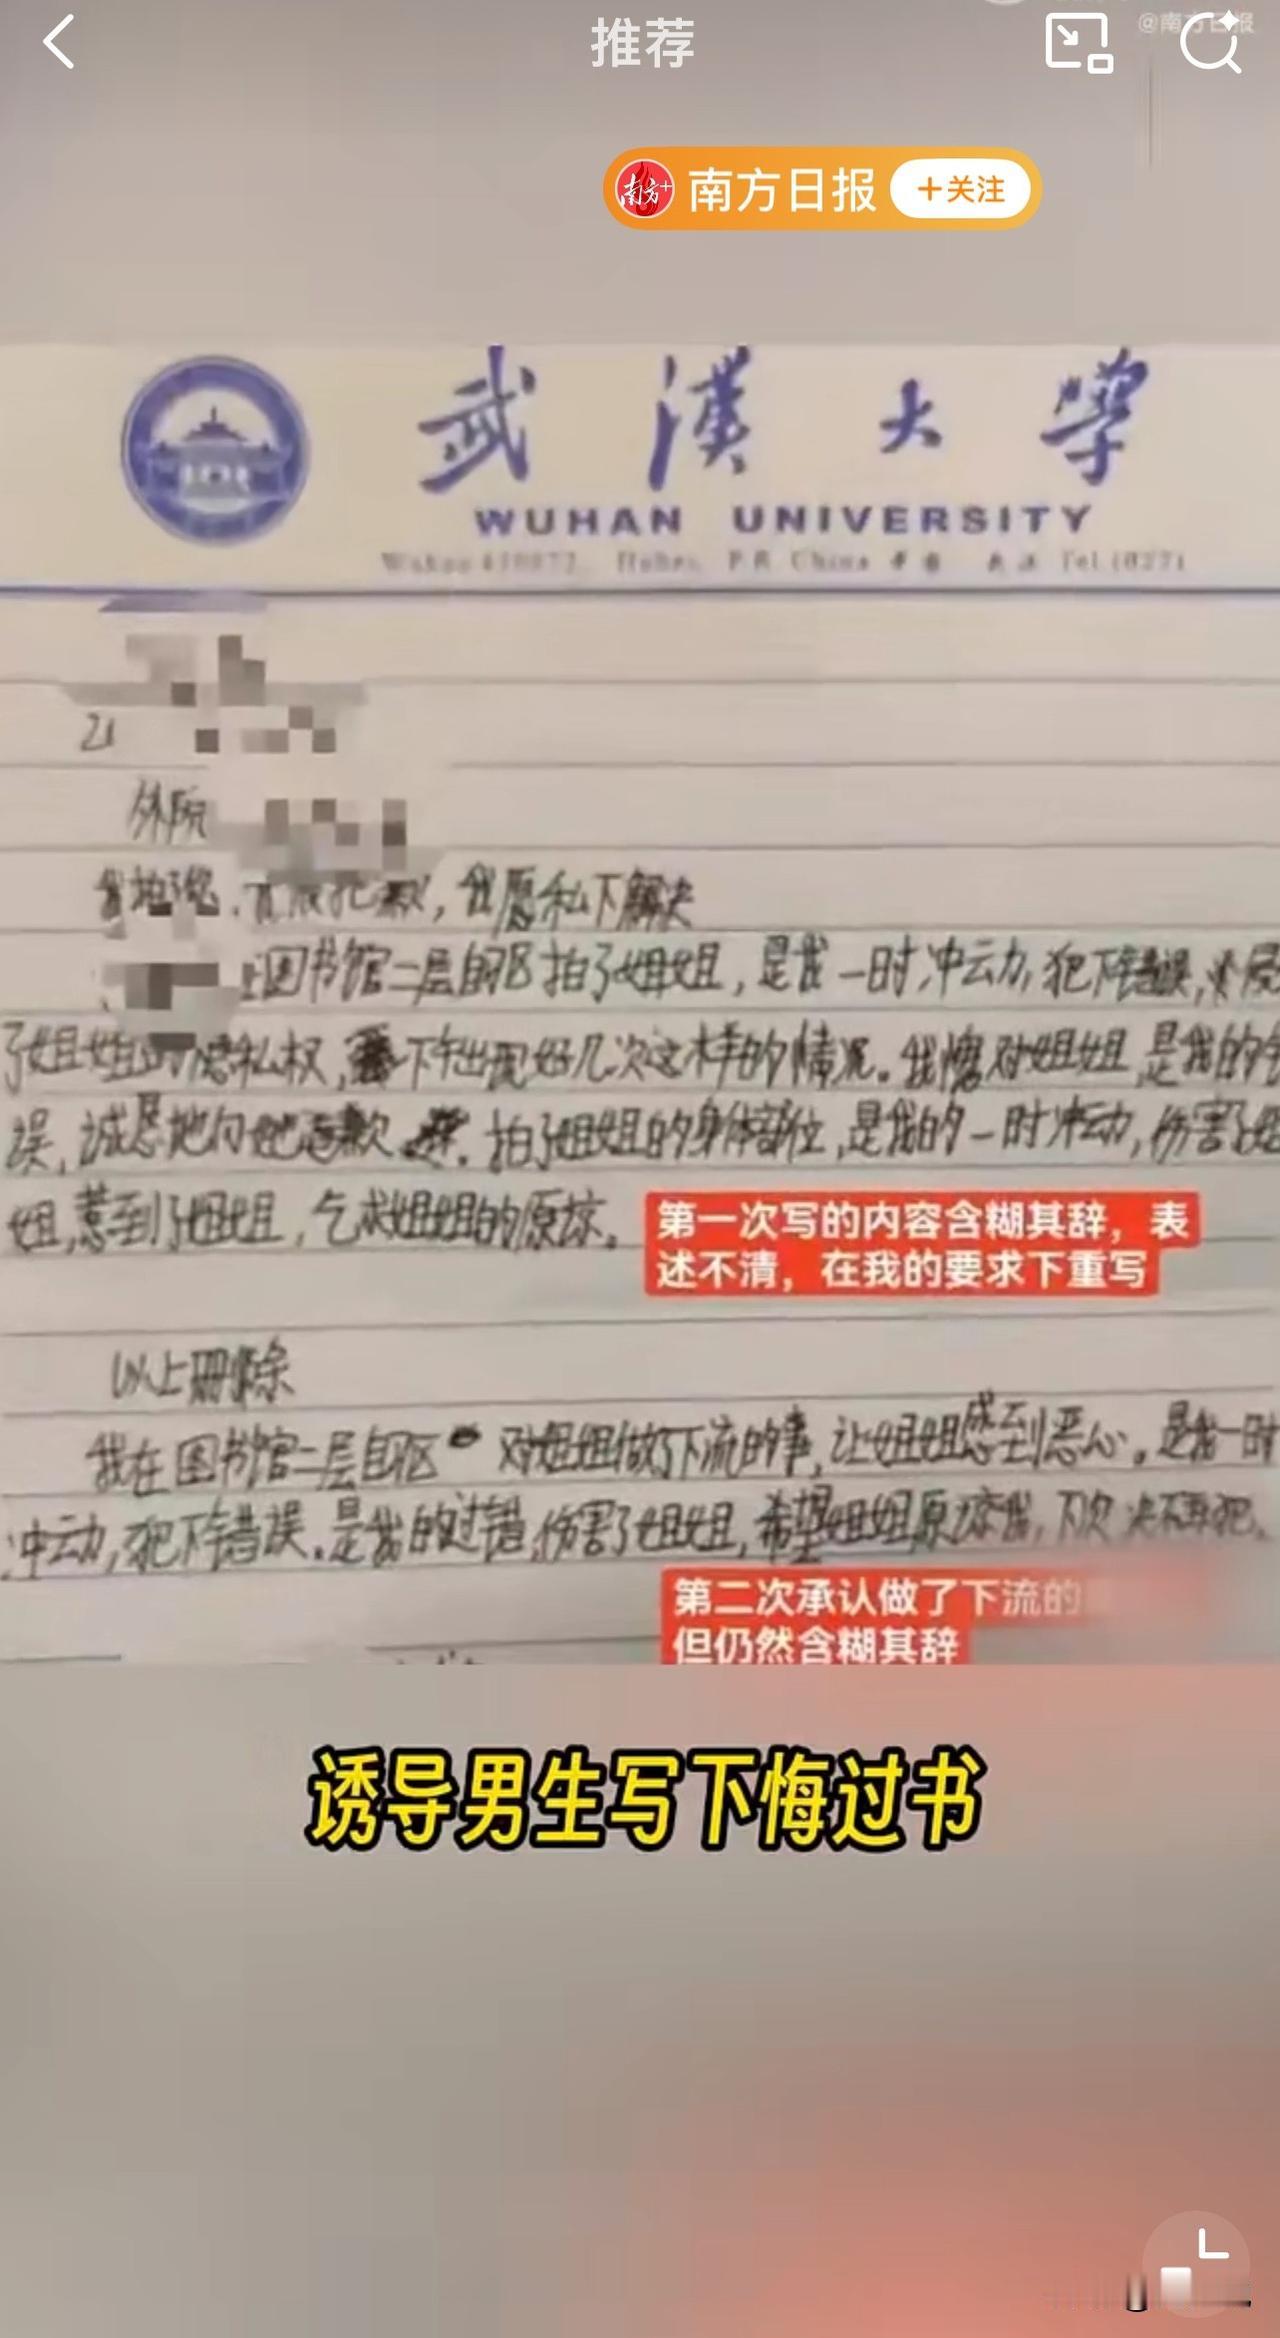 推荐
@南方日报
南方+ 南方日报 +关注
武漢大學
WUHAN UNIVERSITY
Wuhan 430072, Hubei, P.R. China Tel.(027)
21
外院
我愿私下解决
图书馆二层自习区拍了姐姐，是我一时冲动，犯下错误，
了姐姐的隐私权，下午出现好几次这样的情况。我愧对姐姐，是我的
误，诚恳地向她道歉。拍了姐姐的身体部位，是我的一时冲动，伤害了姐
姐，惹到了姐姐，乞求姐姐的原谅。
第一次写的内容含糊其辞，表
述不清，在我的要求下重写
以上删除
我在图书馆二层自习区 对姐姐做了下流的事，让姐姐感到恶心。是我一时
冲动，犯下错误。是我的过错，伤害了姐姐，希望姐姐原谅我，下次决不再犯。
第二次承认做了下流的
但仍然含糊其辞
诱导男生写下悔过书